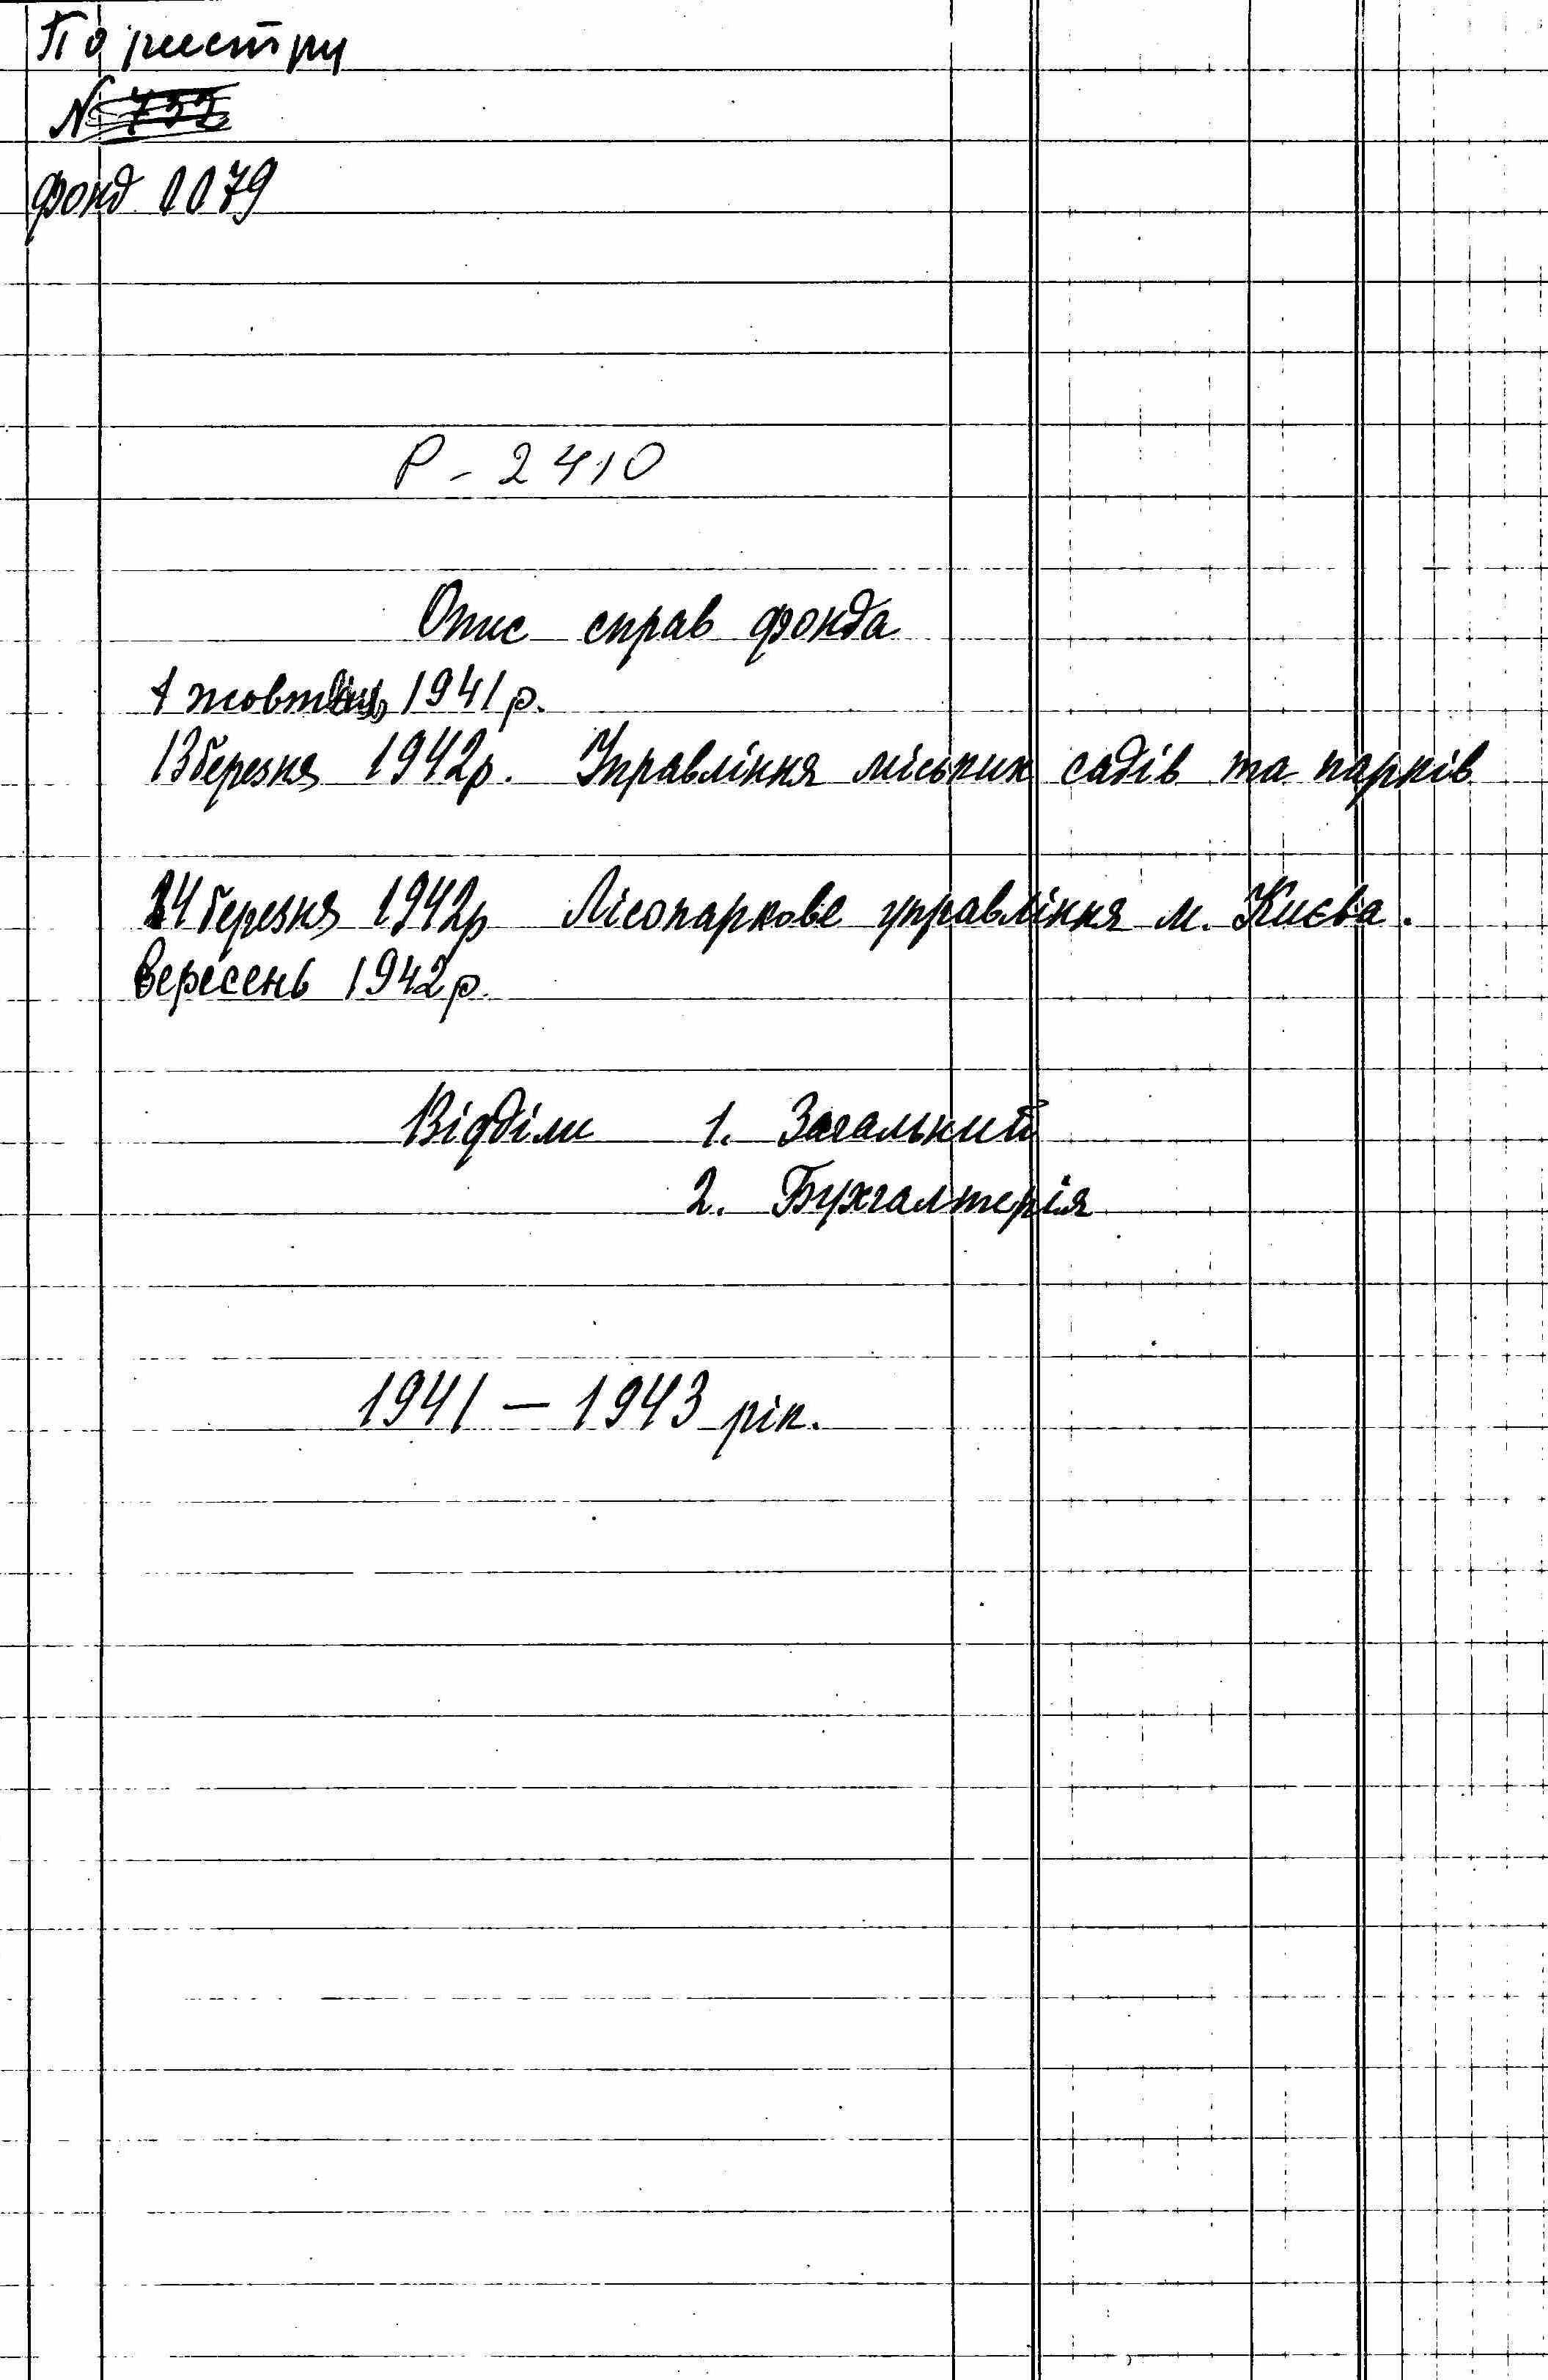 По реестру
№
фонд 0079
Р - 2410
Опис справ фонда
1 жовтня 1941 р.
13 березня 1942р. Управління міських садів та парків
14 березня 1942р Лісопаркове управління м. Києва.
вересень 1942 р.
Відділи 1. Загальний
2. Бухгалтерія
1941 – 1943 рік.